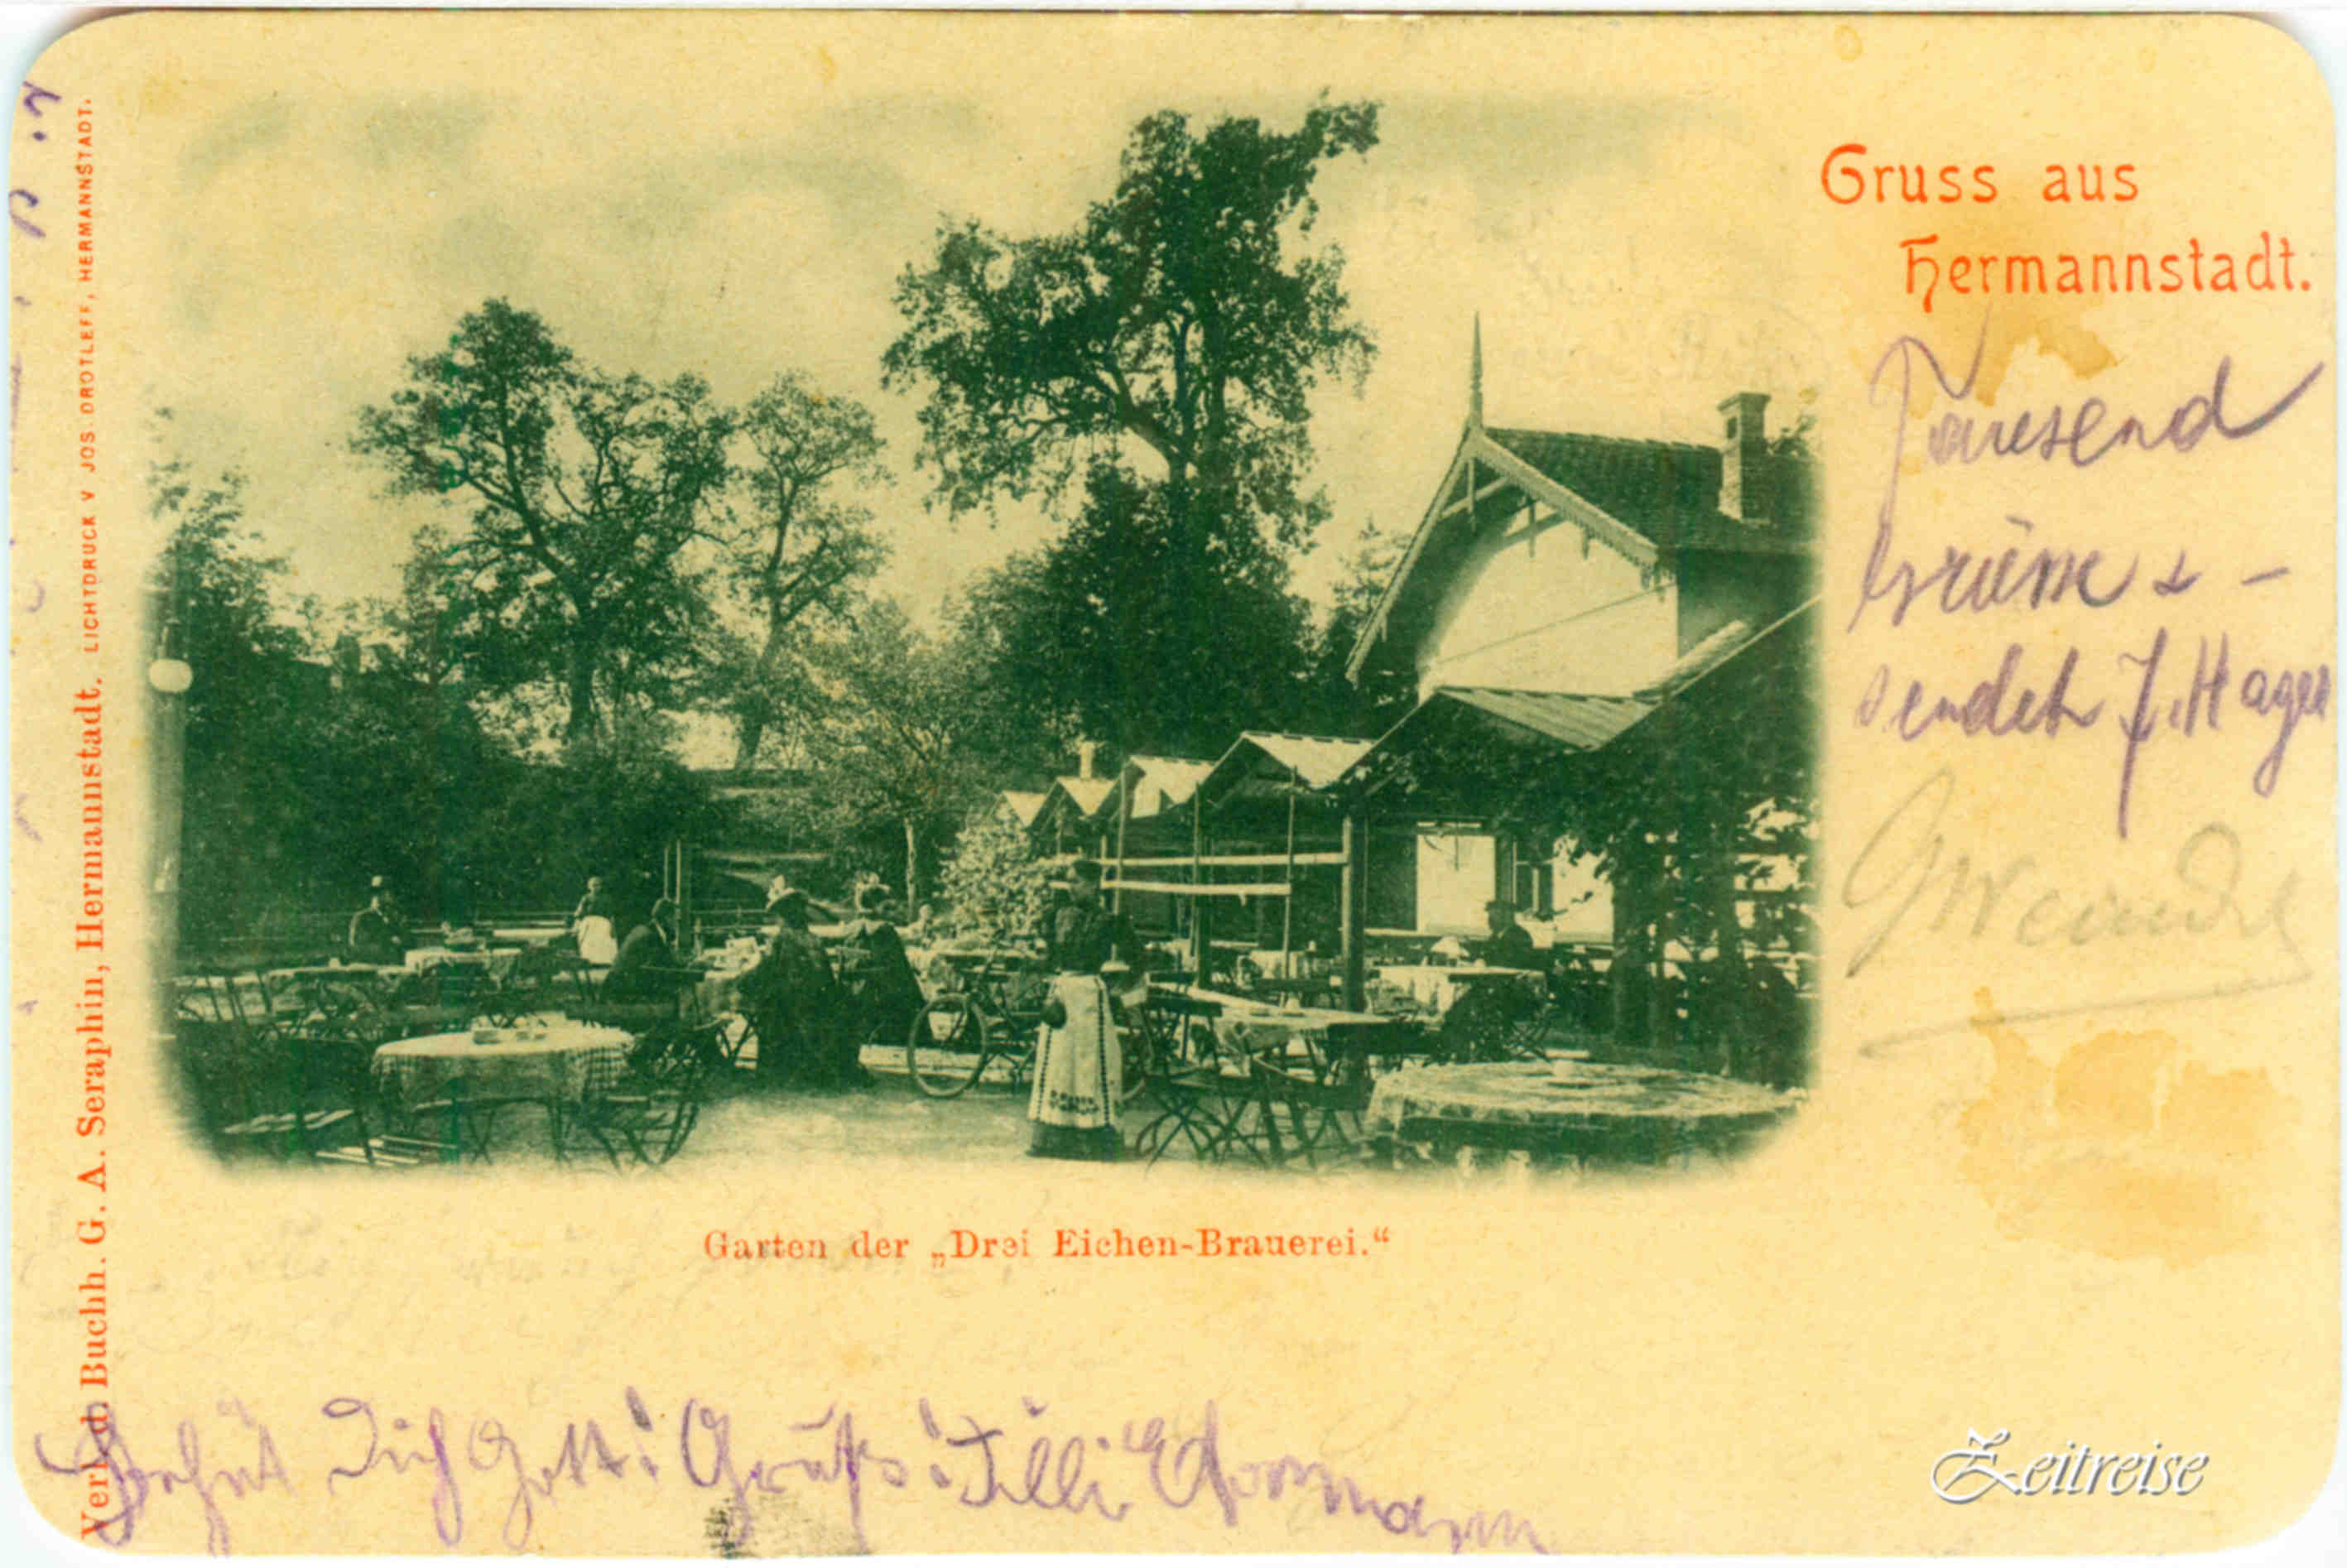 Gruss aus
Hermannstadt.
Tausend
Grüsse
sendet J. Hager
Garten der „Drei Eichen-Brauerei.“
Behüt Dich Gott! Gruß: Tilli
Verl. d. Buchh. G. A. Seraphin, Hermannstadt. LICHTDRUCK V JOS. DROTLEFF, HERMANNSTADT.
Zeitreise